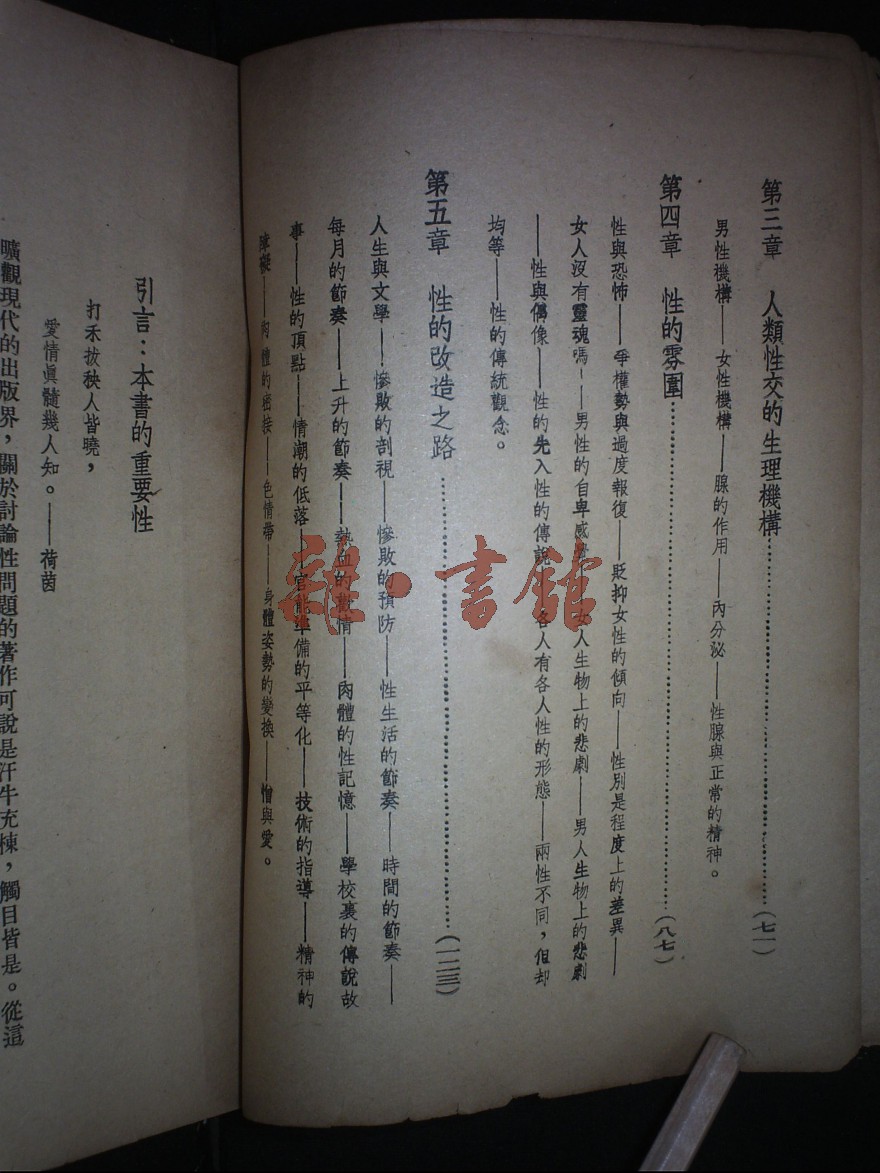 第三章　人類性交的生理機構……(七一)
男性機構——女性機構——腺的作用——內分泌——性腺與正常的精神。
第四章　性的雰圍……(八七)
性與恐怖——爭權勢與過度報復——貶抑女性的傾向——性別是程度上的差異——
女人沒有靈魂嗎——男性的自卑感——女人生物上的悲劇——男人生物上的悲劇
——性與偶像——性的先入性的傳說——各人有各人性的形態——兩性不同，但却
均等——性的傳統觀念。
第五章　性的改造之路……(一二三)
人生與文學——慘敗的剖視——慘敗的預防——性生活的節奏——時間的節奏——
每月的節奏——上升的節奏——熱血的歡情——肉體的性記憶——學校裏的傳說故
事——性的頂點——情潮的低落——官能準備的平等化——技術的指導——精神的
障礙——肉體的密接——色情帶——身體姿勢的變換——憎與愛。
引言：本書的重要性
打禾拔秧人皆曉，
愛情眞髓幾人知。——荷茵
曠觀現代的出版界，關於討論性問題的著作可說是汗牛充棟，觸目皆是。從這
雜·書館